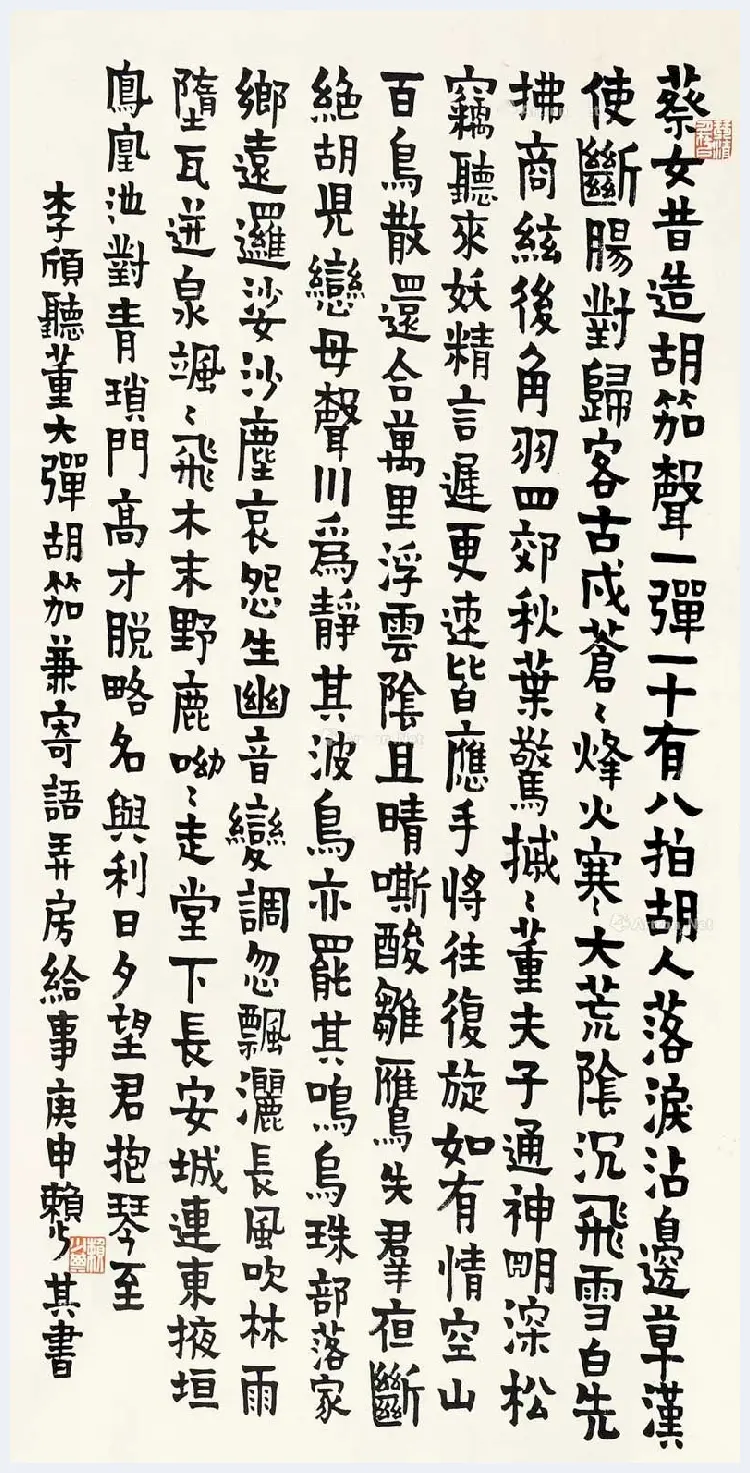 蔡女昔造胡笳聲一彈一十有八拍胡人落淚沾邊草漢
使斷腸對歸客古戍蒼々烽火寒大荒陰沉飛雪白先
拂商絃後角羽四郊秋葉驚摵々董夫子通神明深松
竊聽來妖精言遲更速皆應手將往復旋如有情空山
百鳥散還合萬里浮雲陰且晴嘶酸雛鴈失羣夜斷
絶胡兒戀母聲川爲靜其波鳥亦罷其鳴烏珠部落家
鄉遠邏娑沙塵哀怨生幽音變調忽飄灑長風吹林雨
墮瓦迸泉颯々飛木末野鹿呦々走堂下長安城連東掖垣
鳳凰池對青瑣門高才脫略名與利日夕望君抱琴至
李頎聽董大彈胡笳兼寄語弄房給事庚申賴少其書